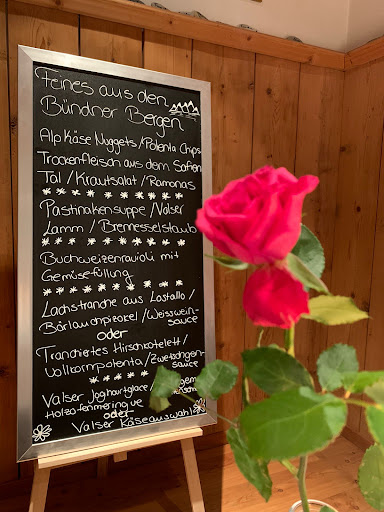 Feines aus den
Bündner Bergen
Alpkäse Nuggets / Polenta Chips
Trockenfleisch aus dem Safien
Tal / Krautsalat / Ramonas
Pastinakensuppe / Valser
Lamm / Bremesselstaub
Buchweizenravioli mit
Gemüsefüllung
Lachstranche aus Lostallo /
Bärlauchpizokel / Weisswein-
sauce
oder
Tranchiertes Hirschkotelett /
Vollkornpolenta / Zwetschgen-
sauce
Valser Joghurtglace
Holzofenmeringue
oder
Valser Käseauswahl